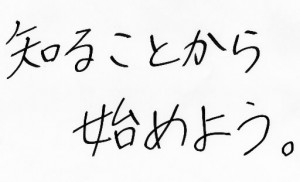 知ることから
始めよう。